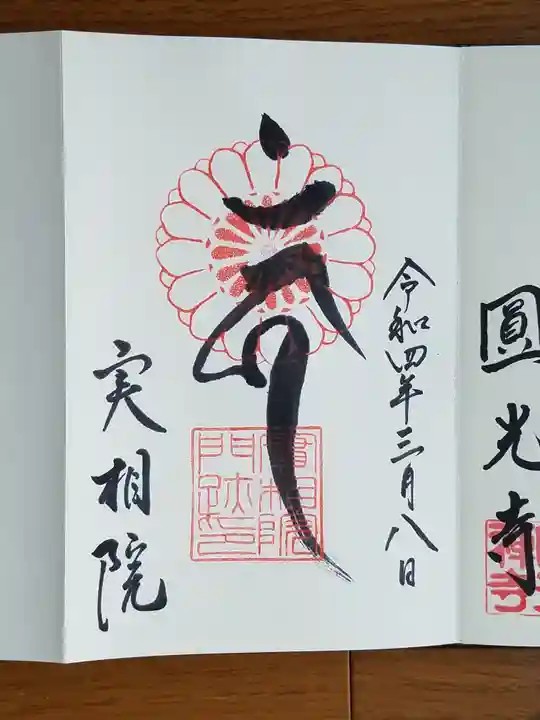 圓光寺
令和四年三月八日
實相院
門跡印
実相院